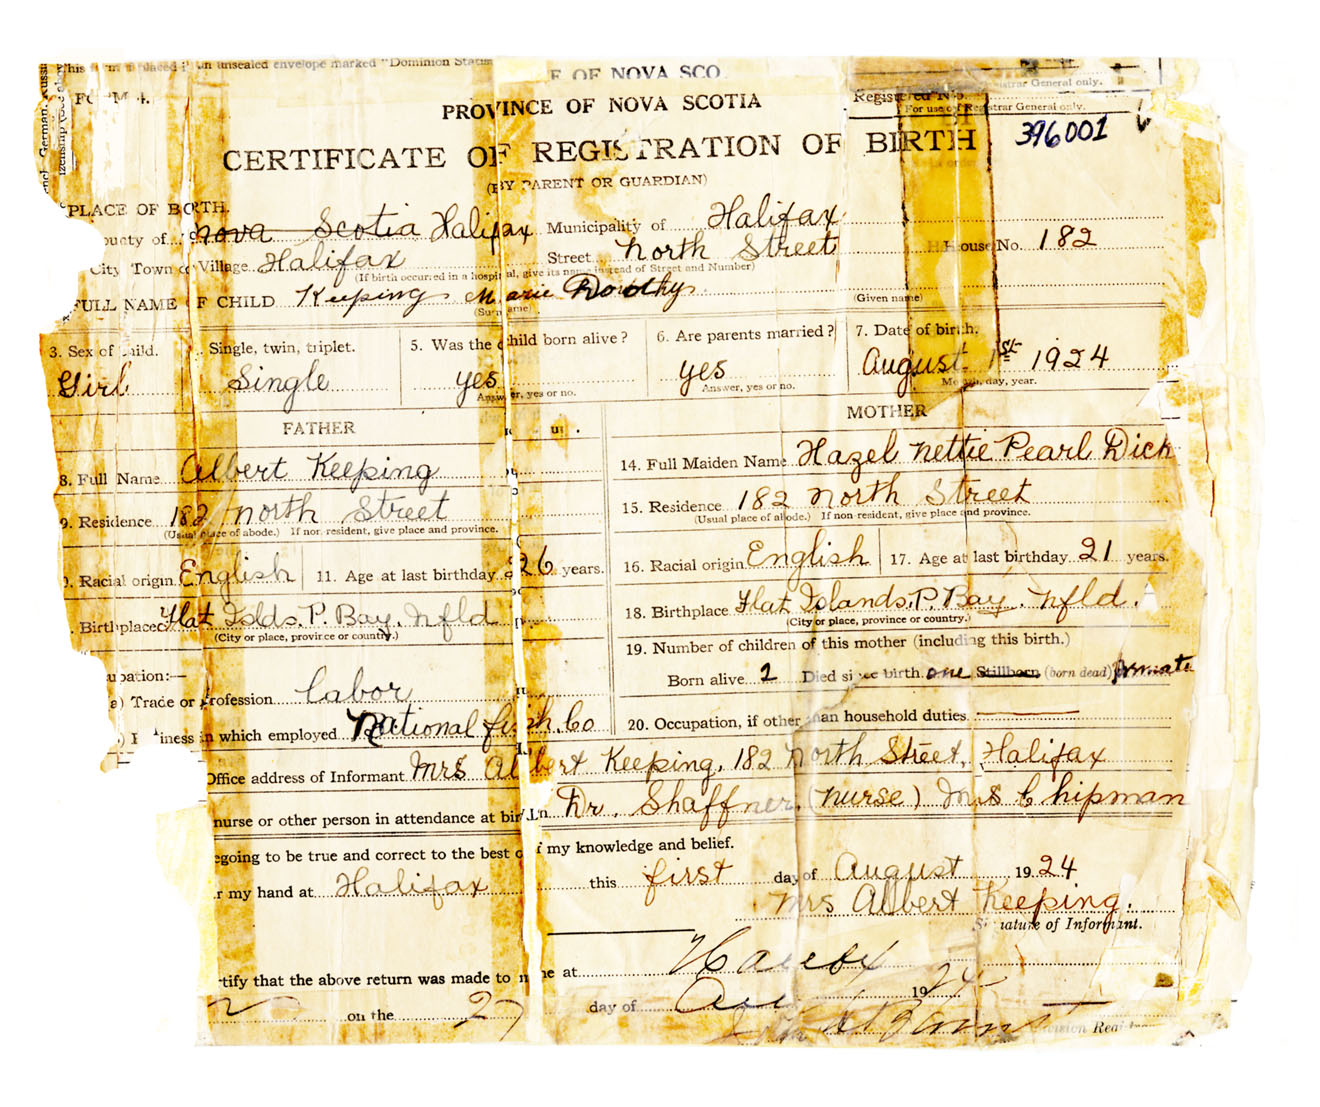 This form placed in an unsealed envelope marked "Dominion Statis
E OF NOVA SCO
strar General only.
FORM 4.
PROVINCE OF NOVA SCOTIA
Registered No.
For use of Registrar General only.
CERTIFICATE OF REGISTRATION OF BIRTH
396001
(BY PARENT OR GUARDIAN)
PLACE OF BIRTH.
ounty of Nova Scotia Halifax Municipality of Halifax
City Town or Village Halifax Street North Street House No. 182
(If birth occurred in a hospital, give its name instead of Street and Number)
FULL NAME OF CHILD Keeping Marie Dorothy
(Surname) (Given name)
3. Sex of child. Single, twin, triplet. 5. Was the child born alive? 6. Are parents married? 7. Date of birth.
Girl Single yes yes August 1st 1924
Answer, yes or no. Answer, yes or no. Month, day, year.
FATHER MOTHER
8. Full Name Albert Keeping 14. Full Maiden Name Hazel Nettie Pearl Dick
9. Residence 182 North Street 15. Residence 182 North Street
(Usual place of abode.) If non resident, give place and province. (Usual place of abode.) If non-resident, give place and province.
. Racial origin English 11. Age at last birthday 26 years. 16. Racial origin English 17. Age at last birthday 21 years.
. Birthplace Flat Islds. P. Bay. Nfld 18. Birthplace Flat Islands. P. Bay. Nfld.
(City or place, province or country.) (City or place, province or country.)
19. Number of children of this mother (including this birth.)
upation:—
Born alive 2 Died since birth one Stillborn (born dead)
a) Trade or profession labor
) Business in which employed National fish. Co 20. Occupation, if other than household duties.
Office address of Informant Mrs Albert Keeping, 182 North Street, Halifax
nurse or other person in attendance at birth Dr. Shaffner. (nurse) Mrs Chipman
egoing to be true and correct to the best of my knowledge and belief.
r my hand at Halifax this first day of August 1924
Mrs Albert Keeping.
Signature of Informant.
tify that the above return was made to me at
on the 27 day of 1924
Division Regi